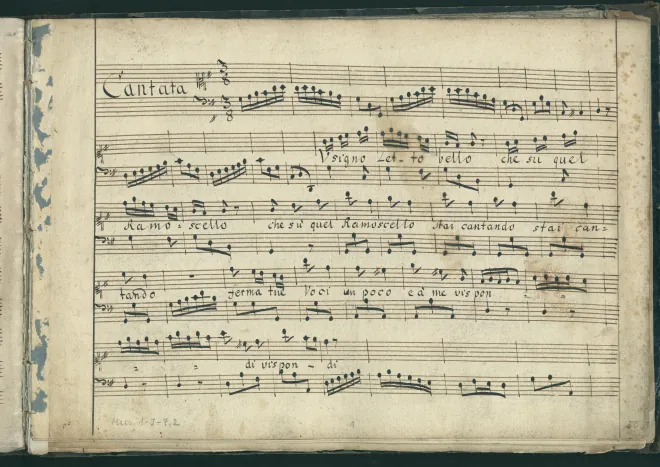 Cantata
3 8
3 8
Vsigno Let-to bello che su quel
Ramo-scello che sù quel Ramoscello stai cantando stai can-
tando ferma tue Voci un poco ed me vispon - -
- - di vispon - di